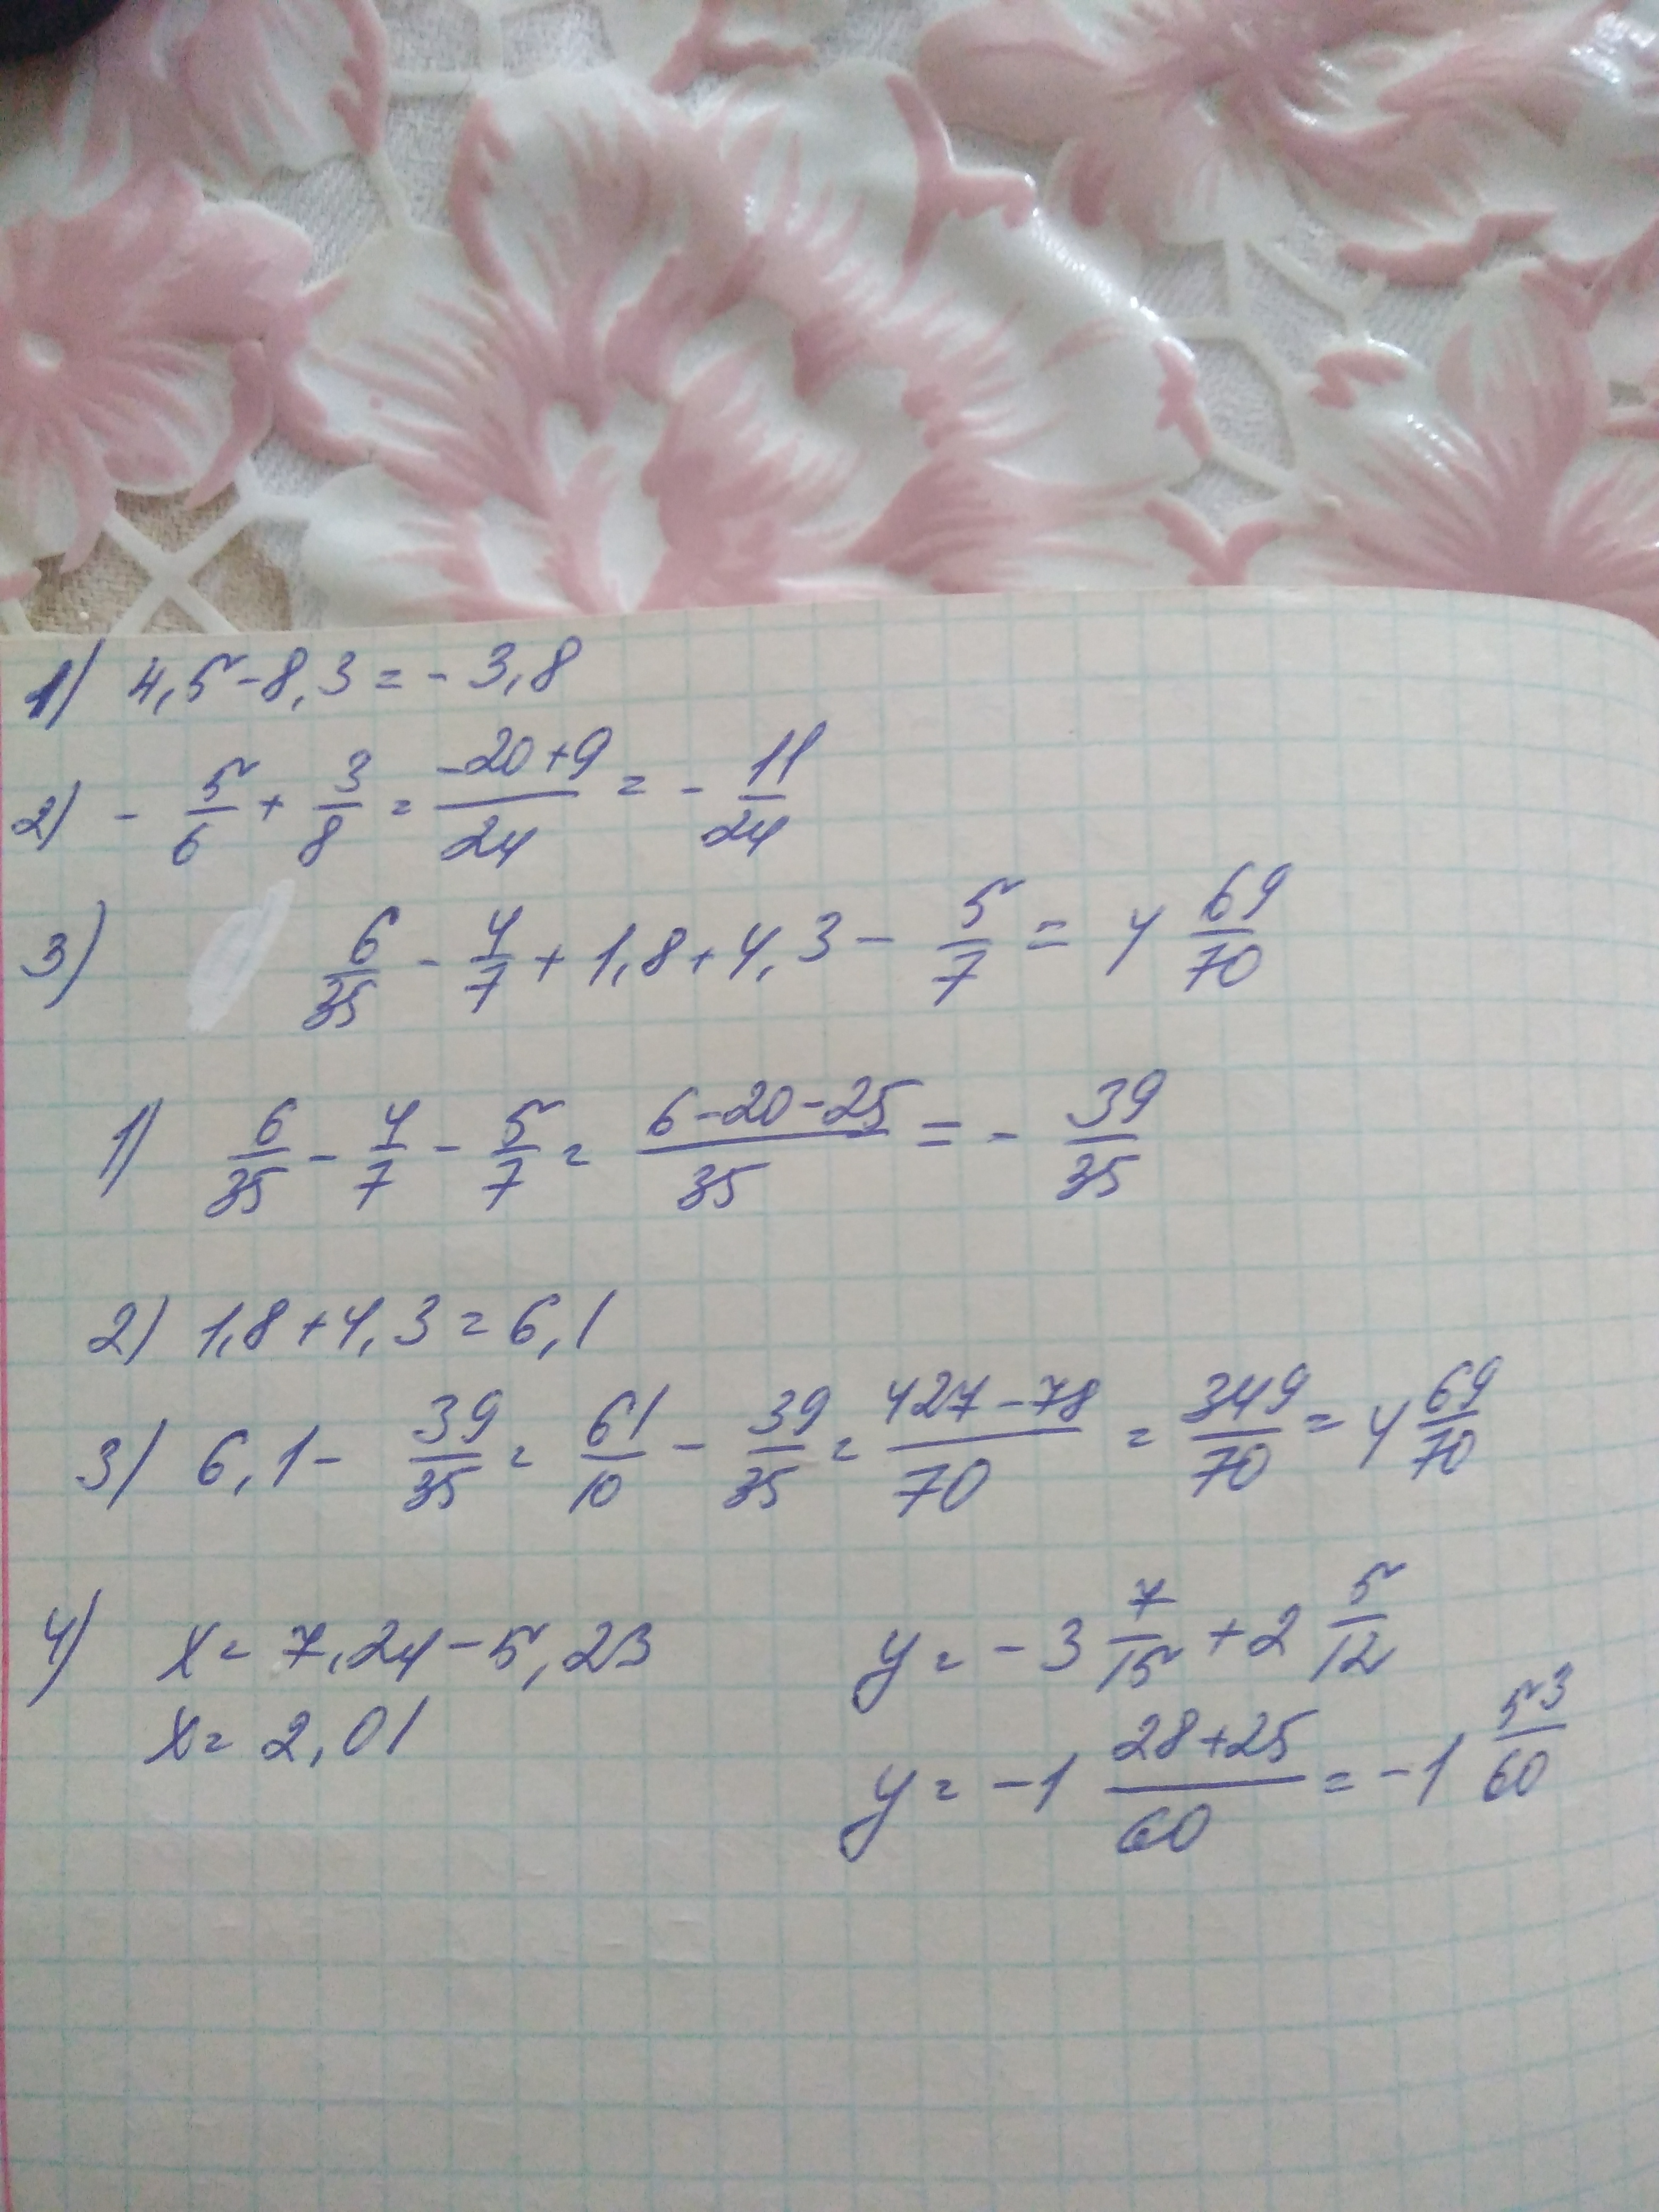 1) 4,5-8,3=-3,8
2) - 5/6 + 3/8 = -20+9/24 = - 11/24
3) 6/35 - 4/7 + 1,8+4,3 - 5/7 = 4 69/70
1) 6/35 - 4/7 - 5/7 = 6-20-25/35 = - 39/35
2) 1,8+4,3=6,1
3) 6,1- 39/35 = 61/10 - 39/35 = 427-78/70 = 349/70 = 4 69/70
4) x= 7,24-5,23 y= -3 7/15 +2 5/12
x= 2,01 y= -1 28+25/60 = -1 53/60